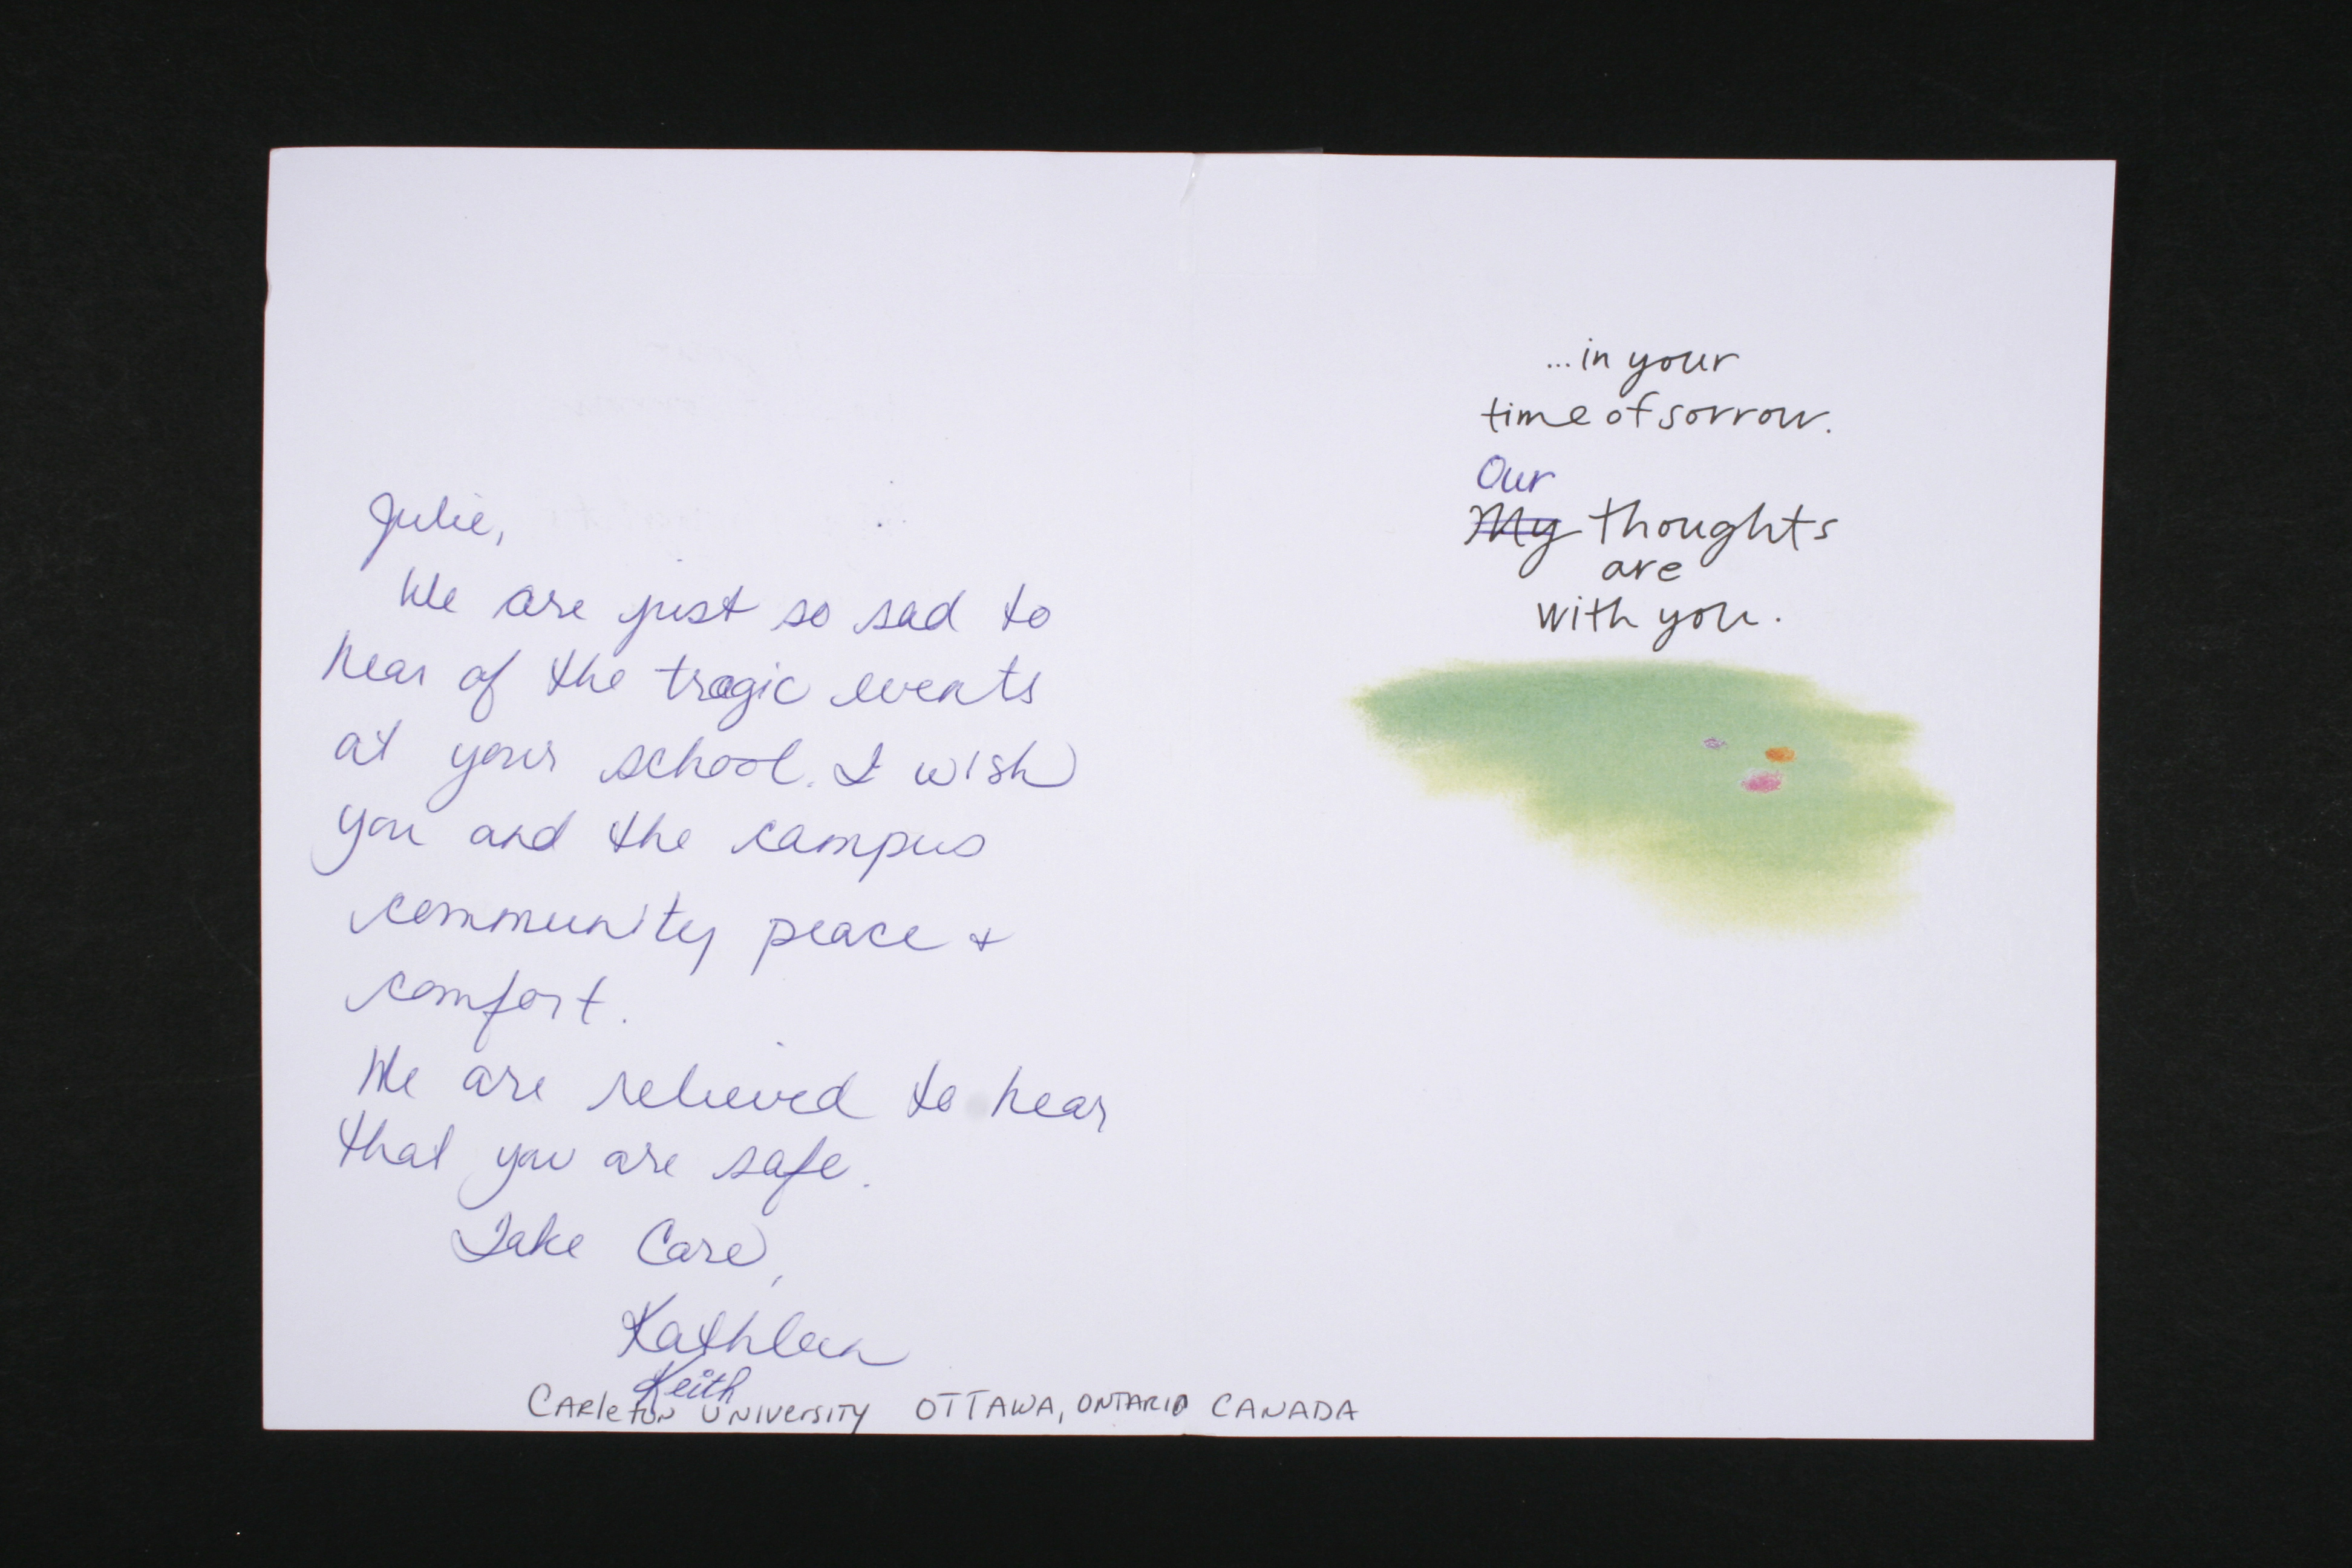 Julie,
We are just so sad to
hear of the tragic events
at your school. I wish
you and the campus
community peace +
comfort.
We are relieved to hear
that you are safe.
Take Care,
Kathleen
Keith
CARleTON UNIVERSITY OTTAWA, ONTARIO CANADA
...in your
time of sorrow.
Our
My thoughts
are
with you.